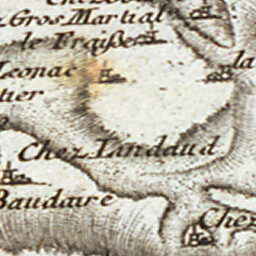 Gros Martial
le Fraiße
Leonac
la
tier
Chez Landaud
Baudaire
Chez